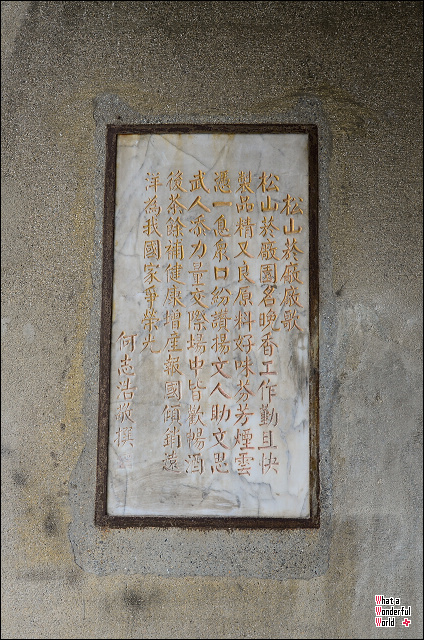 松山菸廠廠歌
松山菸廠園名晚香工作勤且快
製品精又良原料好味芬芳煙雲
憑一息衆口紛讚揚文人助文思
武人添力量交際場中皆歡暢酒
後茶餘補健康增產報國傾銷遠
洋為我國家爭榮光
何志浩敬撰
What a
Wonderful
World